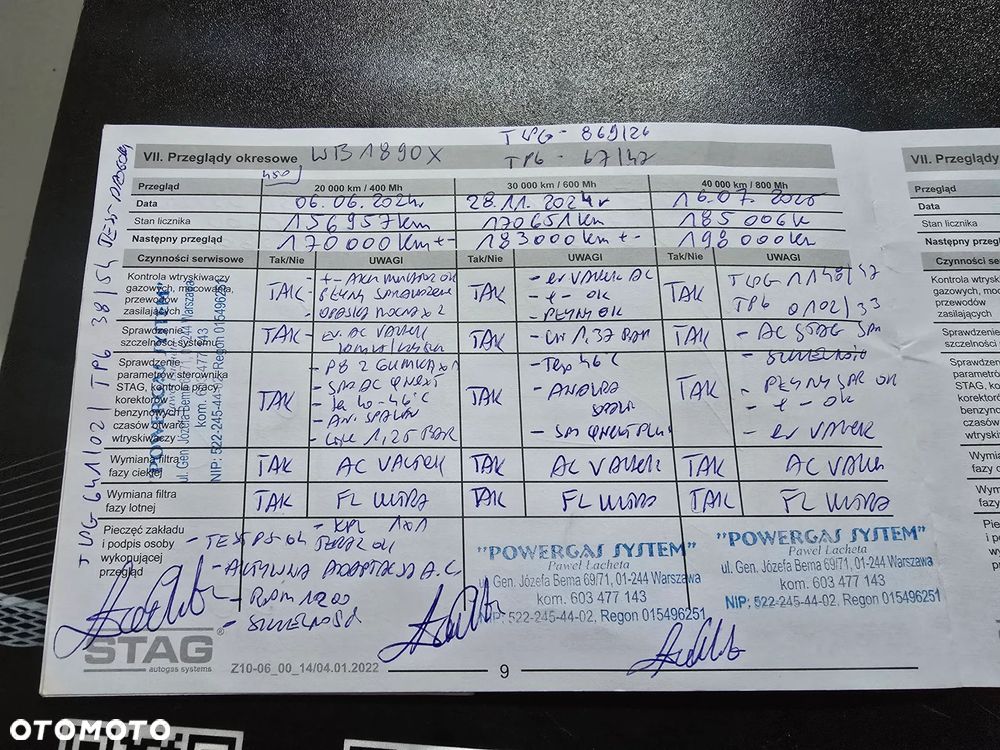 TWG - 869/26
VII. Przeglądy okresowe WB1890X TPG - 67/47
Przegląd 20 000 km / 400 Mh 30 000 km / 600 Mh 40 000 km / 800 Mh
Data 06.06.2024r 28.11.2024r 16.07.
Stan licznika 156957km 170651km 185006k
Następny przegląd 170000km +- 183000km +- 198000km
Czynności serwisowe Tak/Nie UWAGI Tak/Nie UWAGI Tak/Nie UWAGI
Kontrola wtryskiwaczy gazowych, mocowania, przewodów zasilających TAK TAK TAK
- +- AKUMULATOR OK
PŁYNY SPRAWDZONE
- OPASKA MOCNA x 2
- eV VALTEK AC
- + - OK
- PŁYNY OK
TWG 1148/47
TPG 0102/33
Sprawdzenie szczelności systemu TAK TAK TAK
- EV. AC VALTEK
- CW 1,37 BAR
- AC STAG
Sprawdzenie parametrów sterownika STAG, kontrola pracy korektorów benzynowych, czasów otwarć wtryskiwaczy TAK TAK TAK
- PB 2 GUMKA x 1
- SPR AC QNEXT
- 40-46°C
- AN. SPALIN
- 1,25 BAR
- 46°C
- ANALIZA
SPALIN
- SPR QNEXT PLUS
- SZCZELNOŚĆ
- PŁYNY SPR OK
- + - OK
- eV VALTEK
Wymiana filtra fazy ciekłej TAK AC VALTEK TAK AC VALTEK TAK AC VALTEK
Wymiana filtra fazy lotnej TAK FL ULTRA TAK FL ULTRA TAK FL ULTRA
Pieczęć zakładu i podpis osoby wykonującej przegląd
- KPL 1x1
- AKTYWNA ADAPTACJA A.C.
- RPM 1200
- SZCZELNOŚĆ
"POWERGAS SYSTEM"
Paweł Lacheta
ul. Gen. Józefa Bema 69/71, 01-244 Warszawa
kom. 603 477 143
NIP: 522-245-44-02, Regon 015496251
"POWERGAS SYSTEM"
Paweł Lacheta
ul. Gen. Józefa Bema 69/71, 01-244 Warszawa
kom. 603 477 143
NIP: 522-245-44-02, Regon 015496251
"POWERGAS SYSTEM"
ul. Gen. Józefa Bema 69/71, 01-244 Warszawa
kom. 603 477 143
NIP: 522-245-44-02, Regon 015496251
STAG®
autogas systems
Z10-06_00_14/04.01.2022
9
VII. Przeglądy
Przegląd
Data
Stan licznika
Następny przegl
Czynności se
Kontrola wtrysk
gazowych, moc
przewodów
zasilających
Sprawdzenie
szczelności
Sprawdzenie
parametrów
STAG, kont
korektorów
benzynowyc
czasów otw
wtryskiwacz
Wymia
fazy c
Wym
faz
OTOMOTO